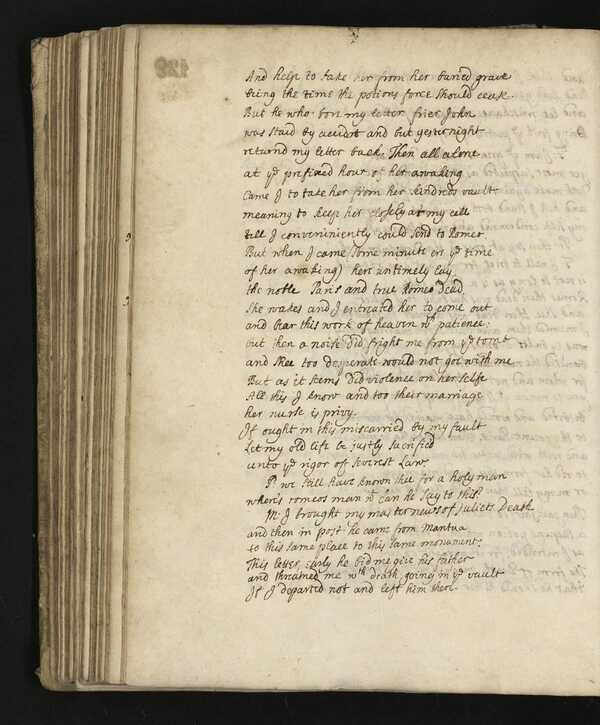 And help to take her from her buried grave
being the time the potions force should cease.
But he who bore my letter frier John
was staid by accident and but yesternight
returnd my letter back, Then all alone
at ye prefixed hour of her awaking
Came I to take her from her kindreds vault
meaning to keep her closely at my cell
till I conveniently could send to Romeo.
But when I came some minute ere ye time
of her awaking) here untimely lay
the noble Paris and true Romeo Dead.
She wakes and I entreated her to come out
and bear this work of heaven wth patience:
but then a noise did fright me from ye tomb
and Shee too desperate would not goe with me
But as it seems Did violence on herselfe
All this I know and too their marriage
her nurse is privy.
If ought in this miscarried by my fault
Let my old life be justly sacrificd
unto ye rigor off severest Law.
Pr we still have known thee for a holy man
where's romeos man wt can he say to this?
M: I brought my master newes of juliets Death
and then in post he came from Mantua
to this same place to this same monument.
This letter early he bid me give his father
and threatned me wth death, going in ye vault
If I departed not and left him there.